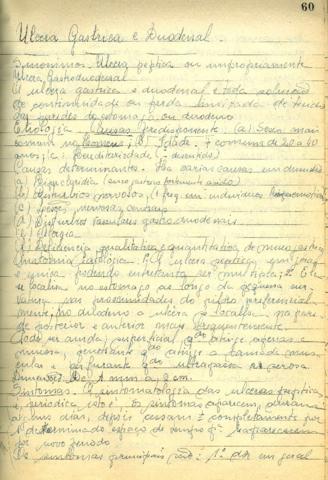 60
Ulcera Gastrica e Duodenal.
Sinonimos Ulcera peptica ou impropriamente
Ulcera Gastroduodenal
A ulcera gastrica e duodenal é toda solução
de continuidade ou perda limitada de tecido
das paredes do estomago ou duodeno
Etiologia - Causas predisponente: (a) Sexo mais
comum no homem; b) Idade + comum de 20 a 40
anos; c) Hereditariedade
Causas determinantes. Ha varias causas
a)
b) nervosos, (+ freq. em individuos
c) Lesões nervosas centrais
d) Disturbios vasculares gastroduodenais
e) Alergia
f) Deficiencia qualitativa e quantitativa de muco
Anatomia Patologica. A ulcera peptica em geral
é unica podendo entretanto ser multipla.
se localisa no estomago ao longo da pequena cur-
vatura nas proximidades do piloro preferencial
mente, no duodeno a ulcera se localisa na pare-
de posterior e anterior mais frequentemente.
Pode ser ainda, superficial qdo atinge apenas a
mucosa, penetrante qdo atinge a camada muscu-
lar e perfurante qdo ultrapassa a serosa
Dimensões: De 1 mm a 2 cm.
Sintomas. A sintomatologia das ulceras peptica
é periodica isto é os sintomas aparecem, duram
alguns dias, depois cessam + completamente por
1 determinado espaço de tempo p/ reaparecerem
por novo periodo
Os sintomas principais são: 1º dor em geral